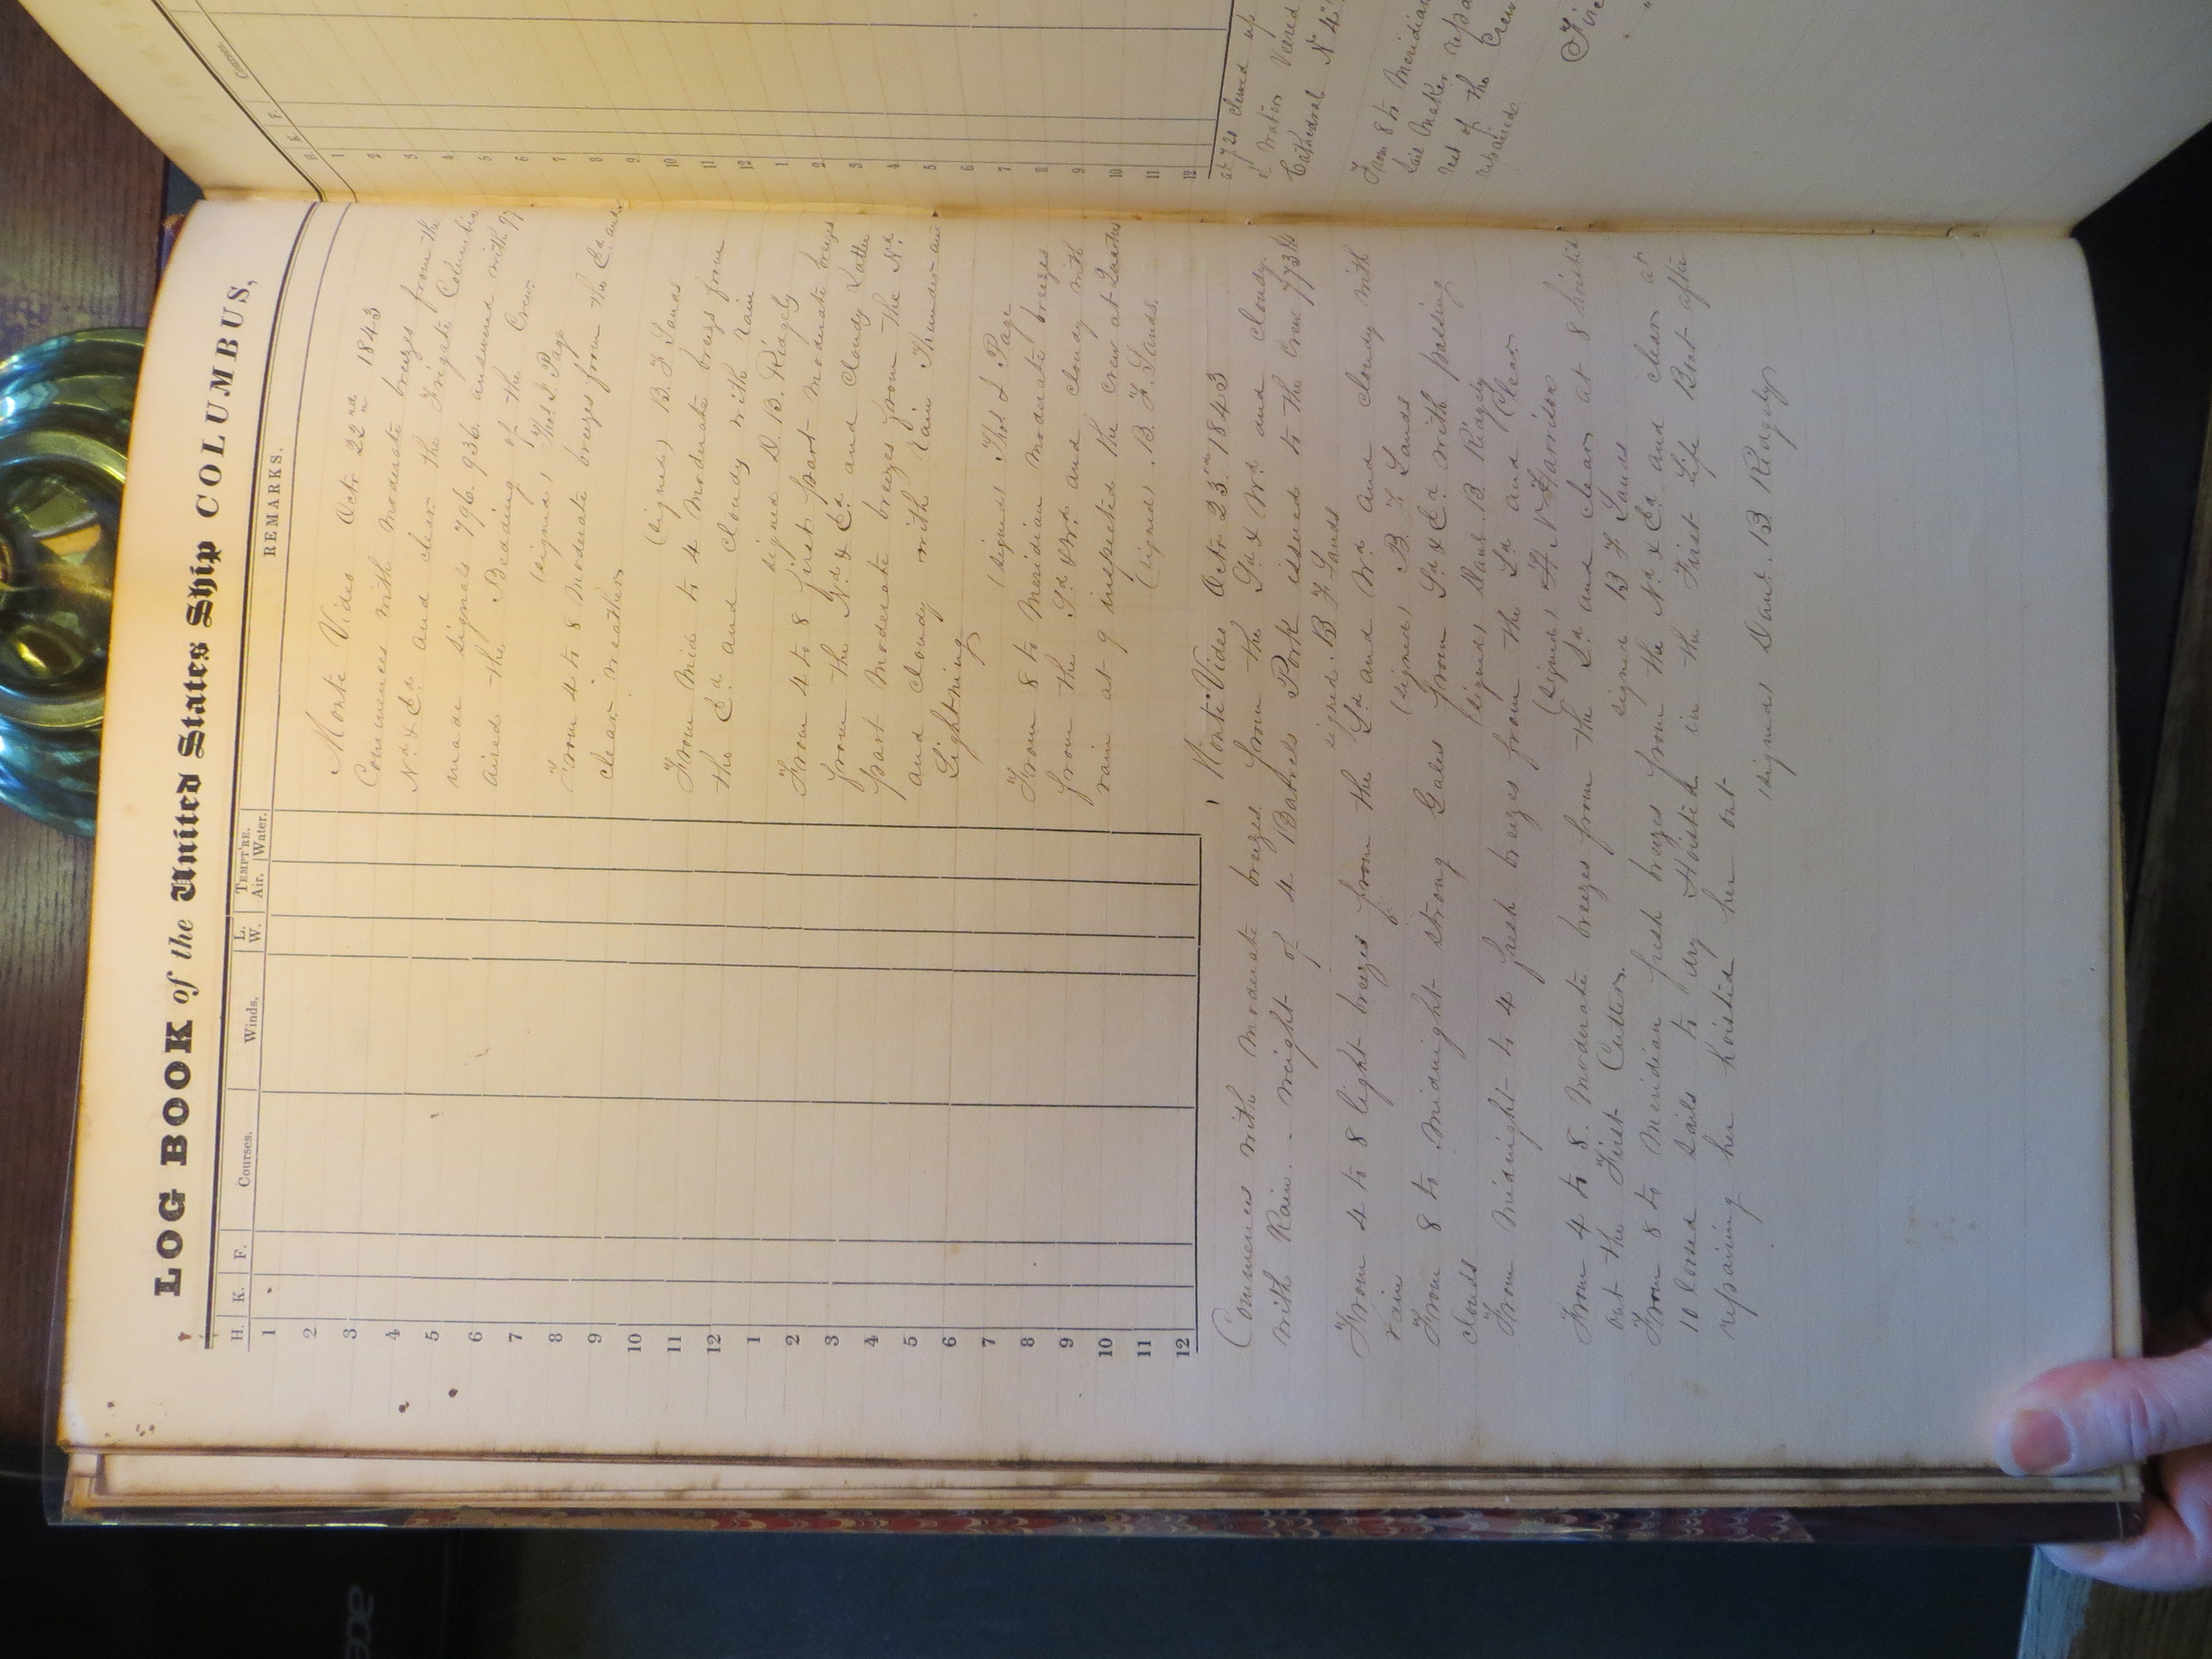 LOG BOOK of the United States Ship COLUMBUS,
H. K. F. Courses. Winds. L. W. TEMPT'RE. Air. Water. REMARKS.
1
2
3
4
5
6
7
8
9
10
11
12
1
2
3
4
5
6
7
8
9
10
11
12
Monte Video Octr 22nd 1843
Commences with moderate breezes from the
Nd & Ed and clear the Frigate Columbia
made signals 796. 936. answered with
aired the Bedding of the Crew.
(signed) Thos J. Page
From 4 to 8 Moderate breezes from the Ed and
clear weather
(signed) B. F. Sands
From Mid to 4 Moderate breezes from
the Ed and cloudy with Rain
signed D. B. Ridgely
From 4 to 8 first part moderate breezes
from the Nd & Ed and cloudy Latter
part moderate breezes from the Nd
and cloudy with Rain Thunder and
Lightning
(signed) Thos J Page
From 8 to Meridian moderate breezes
from the Sd & Wd and cloudy with
rain at 9 inspected the crew at Quarters
(signed) B. F. Sands.
Monte Video Octr 23rd 1843
Commences with moderate breezes from the Sd & Wd and cloudy
with Rain. - weight of 4 Barrels Pork issued to the Crew 773 lbs
signed. B F Sands
From 4 to 8 light breezes from the Sd and Wd and cloudy with
rain (signed) B. F Sands
From 8 to midnight strong Gales from Sd & Ed with passing
clouds (signed) Danl. B. Ridgely
From midnight to 4 fresh breezes from the Sd and Clear
(signed) H N Harrison
From 4 to 8. moderate breezes from the Sd and clear at 8 hoisted
out the First Cutter. signed B F Sands
From 8 to Meridian fresh breezes from the Nd & Ed and clear at
10 loosed sails to dry Hoisted in the First Life Boat after
repairing her hoisted her out
(signed Danl. B Ridgely
H K F Courses
1
2
3
4
5
6
7
8
9
10
11
12
1
2
3
4
5
6
7
8
9
10
11
12
at 7.20 cleared up
Veered
Cathedral N 4
From 8 to Meridian
Sail Maker
rest of the Crew
acer